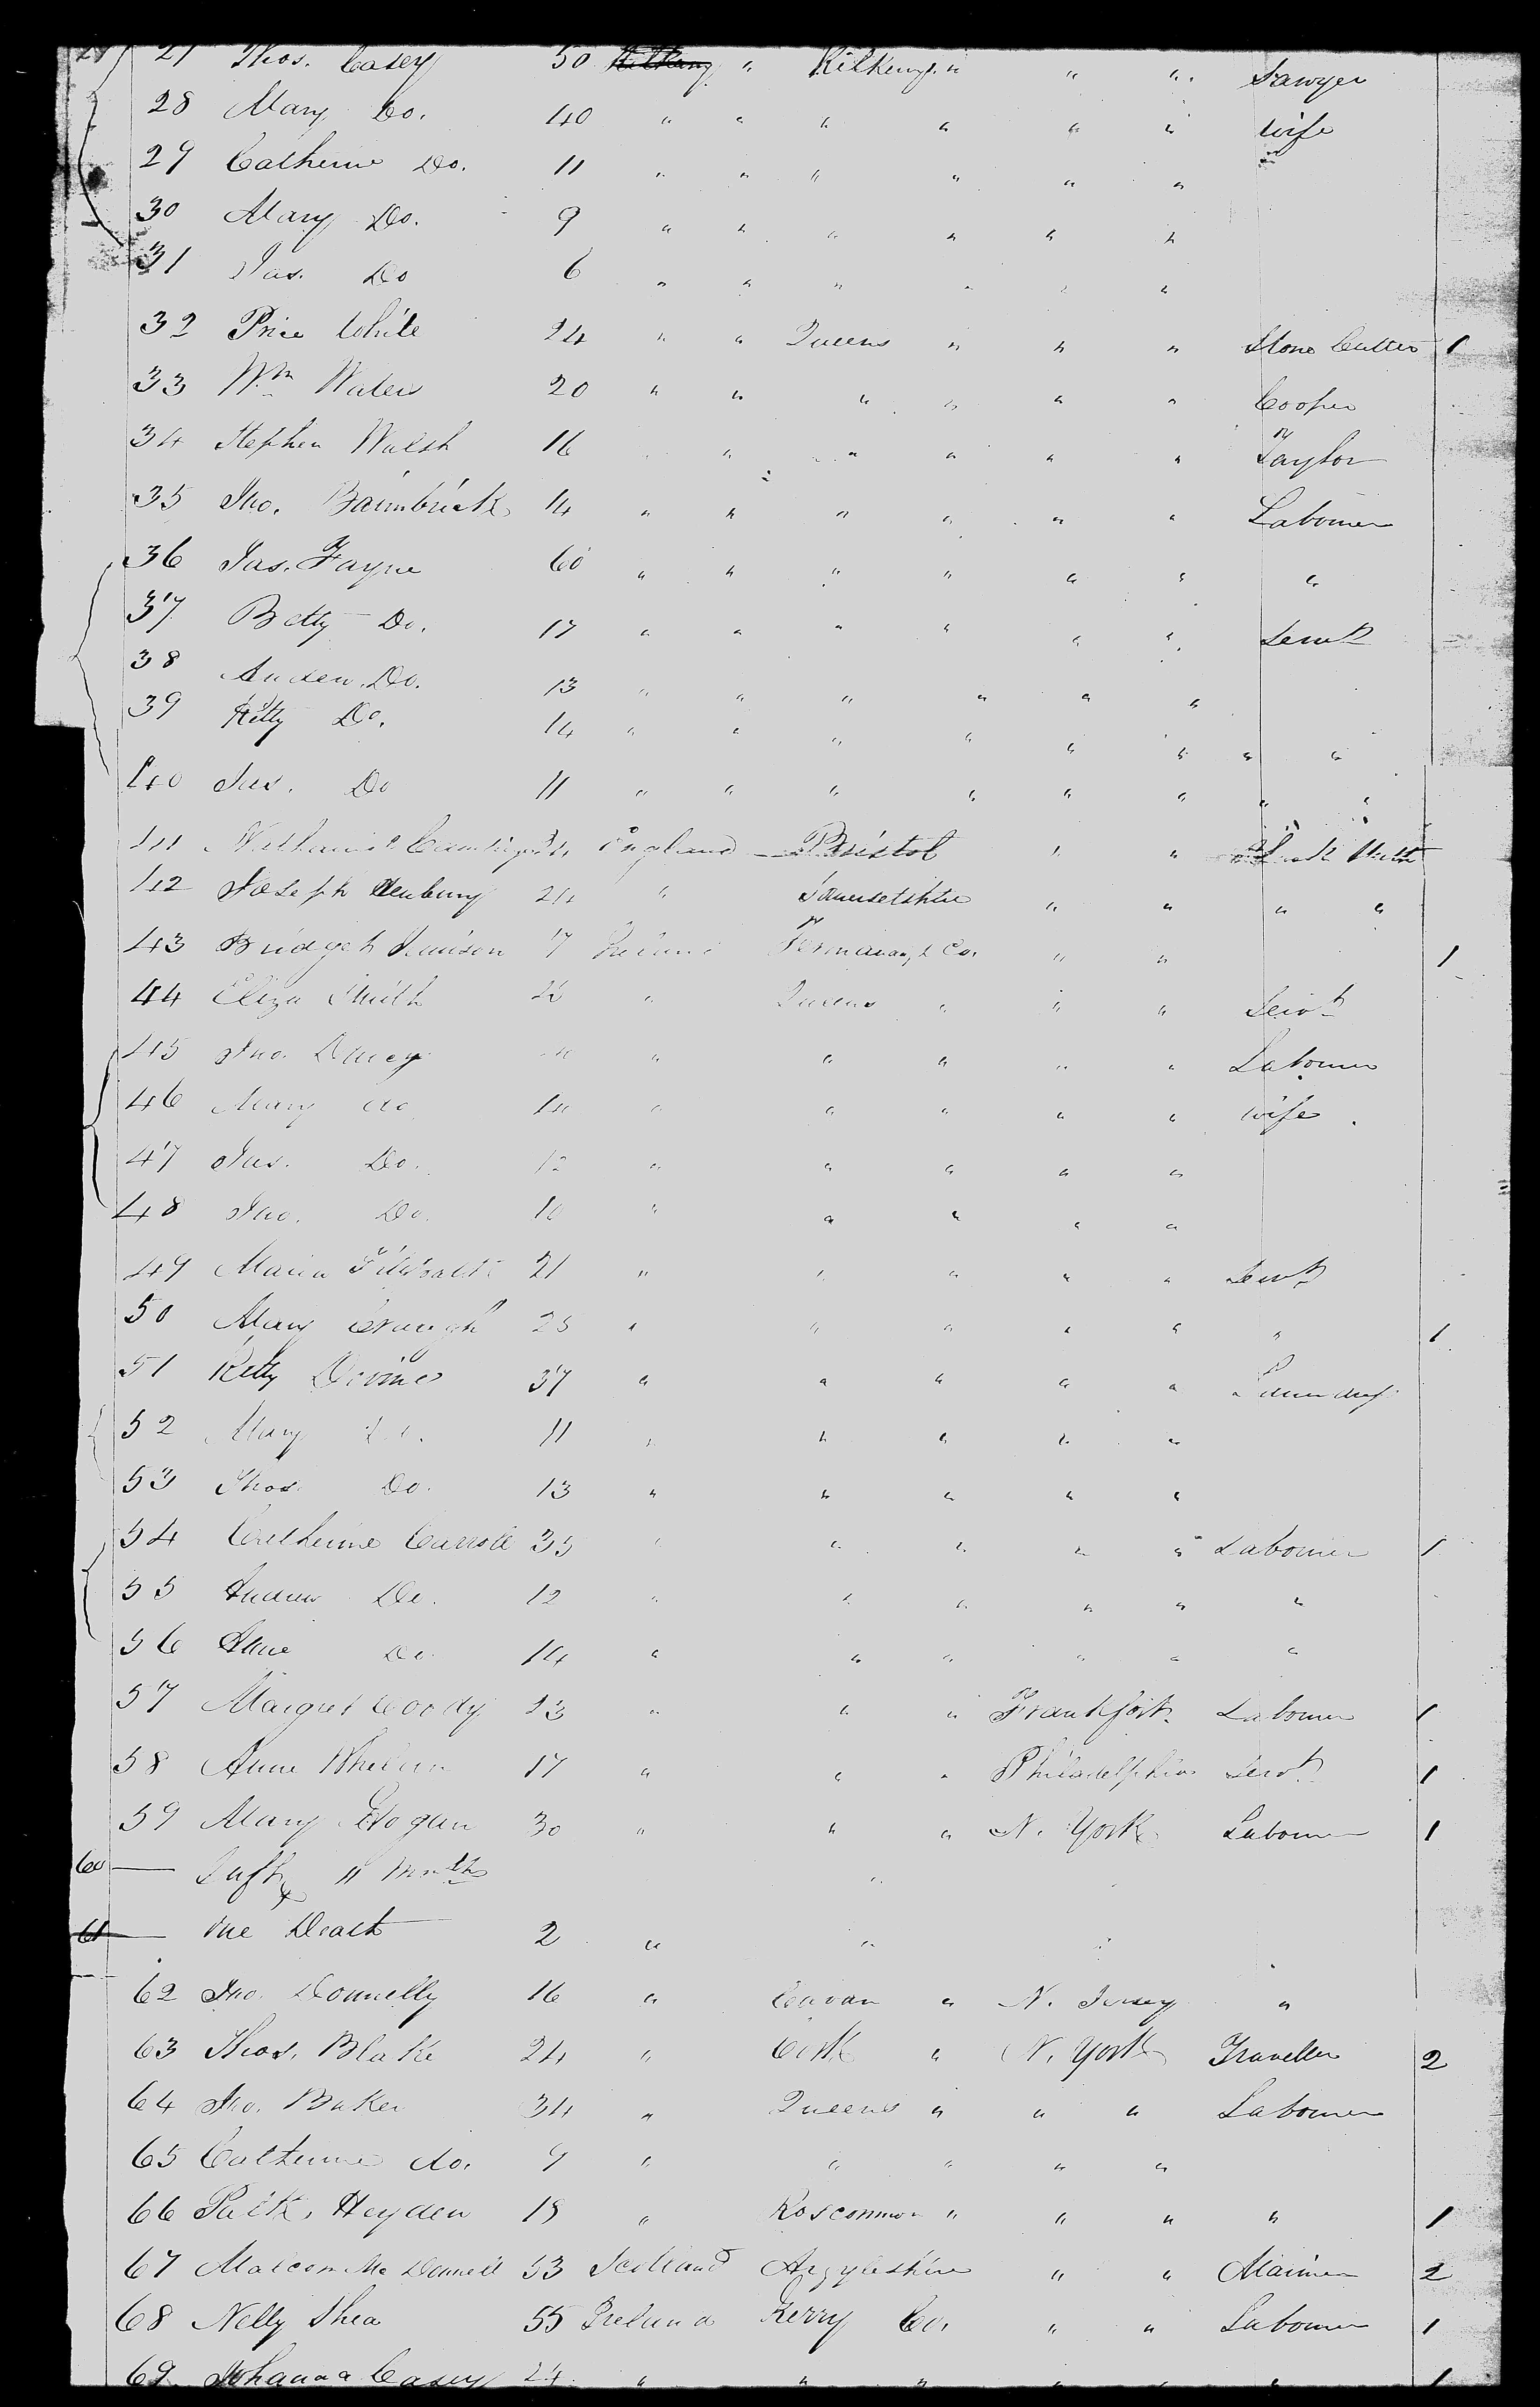 27 Thos. Casey 50 Kilkeny " Kilkeny " " " Sawyer
28 Mary Co. 40 " " " " " " wife
29 Catherine Do. 11 " " " " " "
30 Mary Do. 9 " " " " " "
31 Jas. Do 6 " " " " " "
32 Price White 24 " " Queens " " " Stone Cutter 1
33 Wm Waters 20 " " " " " " Cooper
34 Stephen Walsh 16 " " " " " Taylor
35 Jno. Baimbrick 14 " " " " " " Labourer
36 Jas. Fayne 60 " " " " " " "
37 Betty Do. 17 " " " " " " Servt
38 Andrew Do. 13 " " " " " "
39 Kitty Do. 14 " " " " " " " "
40 Jas. Do 11 " " " " " " " "
41 England Bristol " "
42 Joseph 24 " Somersetshire " " " "
43 Bridget 17 Ireland Fermanagh Co. " " 1
44 Eliza Smith " Queens " " " Servt
45 Jno. " " " " " Labourer
46 Mary do " " " " " wife
47 Jas. Do. 12 " " " " "
48 Jno. Do. 10 " " " " "
49 Maria 21 " " " " " Servt
50 Mary " " " " " " 1
51 Kitty Divine 37 " " " " "
52 Mary 11 " " " " "
53 Thos. Do. 13 " " " " "
54 Catherine Carroll 35 " " " " " Labourer 1
55 Andrew Do. 12 " " " " " "
56 Do 14 " " " " " "
57 Margret Coody " " " Frankfort Labourer 1
58 Anne Whelan 17 " " " Philadelphia Servt 1
59 Mary Hogan 30 " " " N. York Labourer 1
60 — 11 Months "
61 — One Death 2 " " "
62 Jno. Donnelly 16 " Cavan " N. Jersey "
63 Thos. Blake 24 " Cork " N. York Traveller 2
64 Jno. Baker 34 " Queens " " " Labourer
65 Catherine do. 9 " " " " "
66 Patk. Heyden 18 " Roscommon " " " " 1
67 Malcom Mc Donnell 53 Scotland Argyleshire " " Mariner 2
68 Nelly Shea 55 Ireland Kerry Co. " " Labourer 1
69 Johanna Casey 24 " " " " " " 1